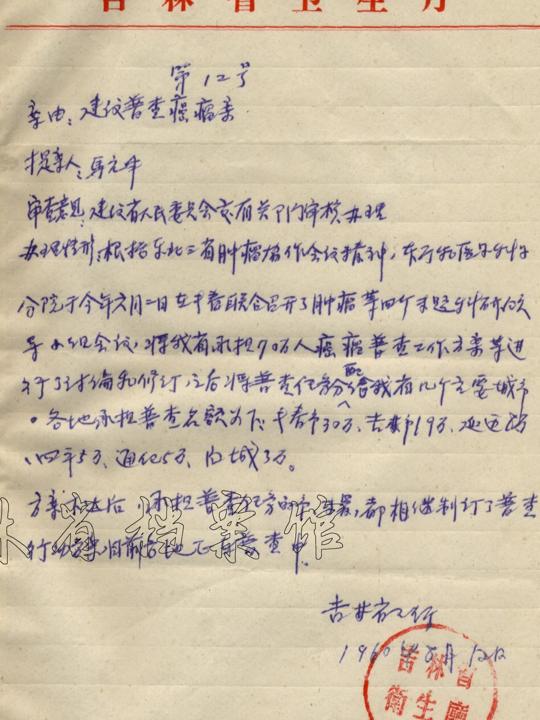 吉林省卫生厅
第12号
案由：建议普查癌瘤案
提案人：马
审查意见：建议省人民委员会交有关部门审核办理
办理情形：根据东北三省肿瘤协作会议精神，东
分院于今年六月二日在长春联合召开了肿瘤等四个专题科研领
导小组会议，将我省承担70万人癌瘤普查工作方案等进
行了讨论和修订后，将普查任务分配给我省几个主要城市
。各地承担普查名额为下：长春市30万、吉林市19万、延边
、四平5万、通化5万、白城3万。
方案后，承担普查任务的，都相继制订了普查
行动，目前各地正在普查中。
吉林省档案馆
吉林省卫生厅
1960年8月12日
吉林省
衛生廳